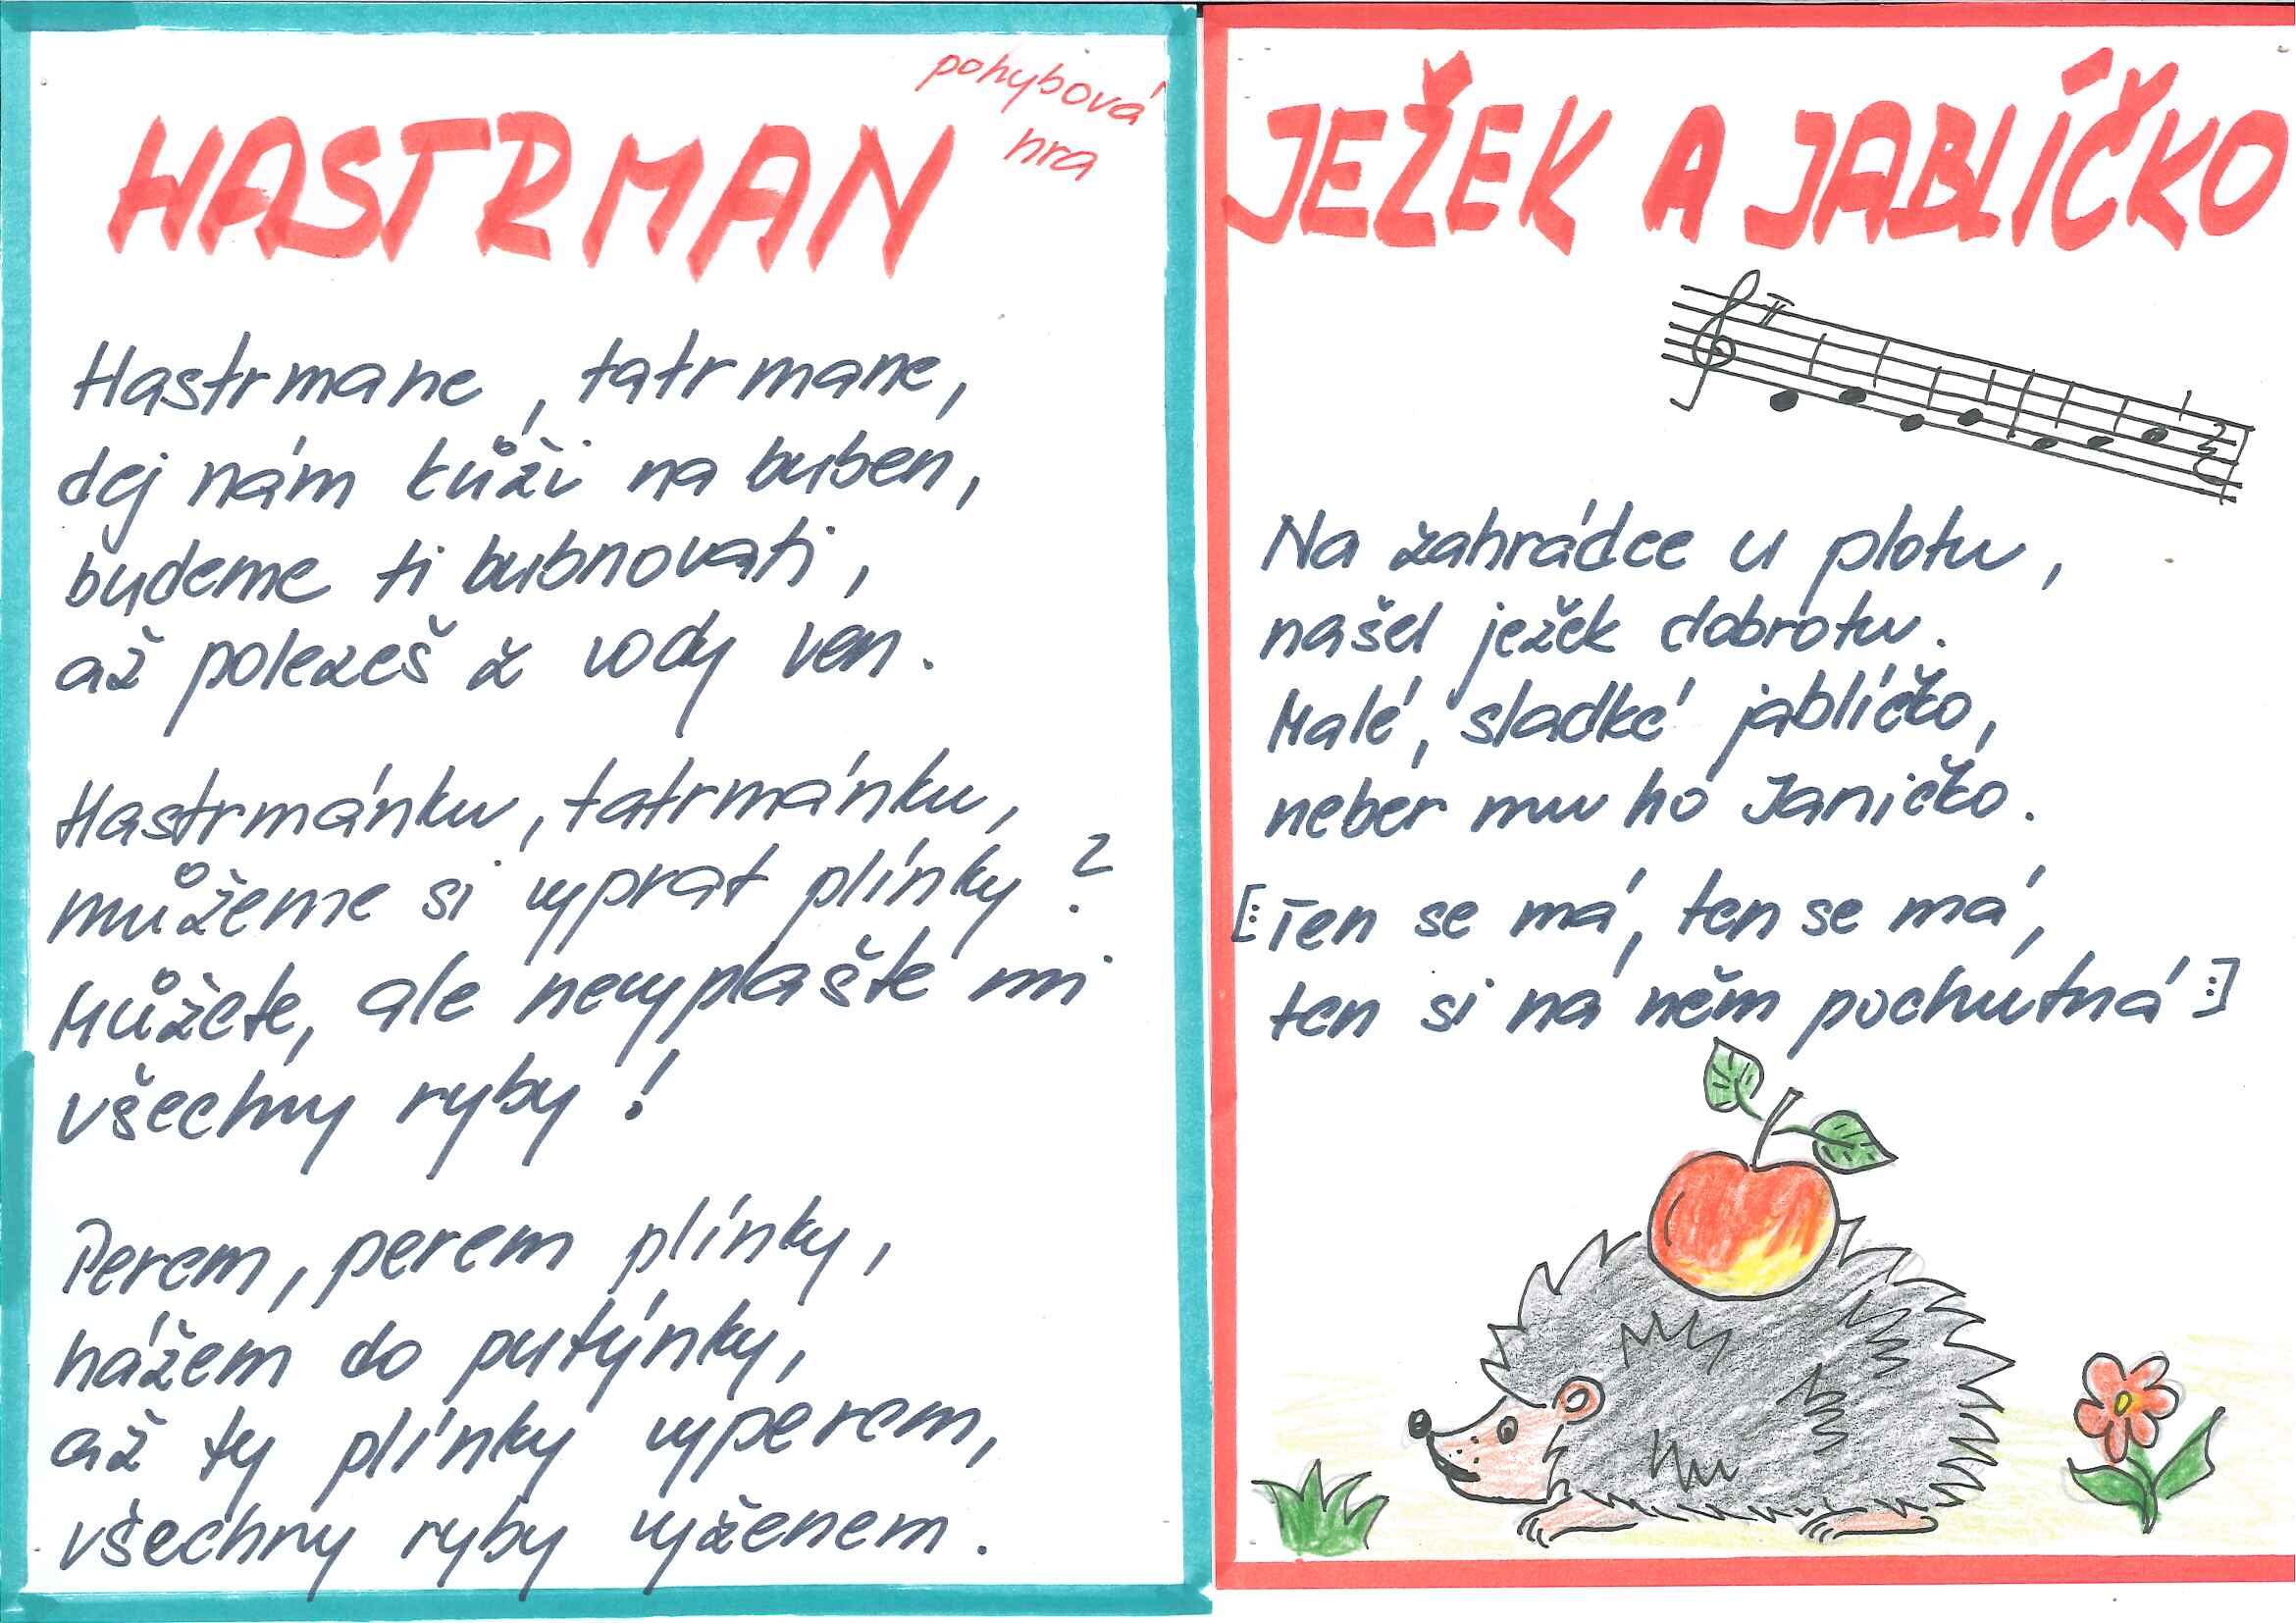 pohybová
hra
HASTRMAN
Hastrmane, tatrmane,
dej nám kůži na buben,
budeme ti bubnovati,
až polezeš z vody ven.
Hastrmánku, tatrmánku,
můžeme si vyprat plínky?
Můžete, ale nevyplašte mi
všechny ryby!
Perem, perem plínky,
házem do putýnky,
až ty plínky vyperem,
všechny ryby vyženem.
JEŽEK A JABLÍČKO
Na zahrádce u plotu,
našel ježek dobrotu.
Malé, sladké jablíčko,
neber mu ho Janičko.
[:Ten se má, ten se má,
ten si na něm pochutná:]